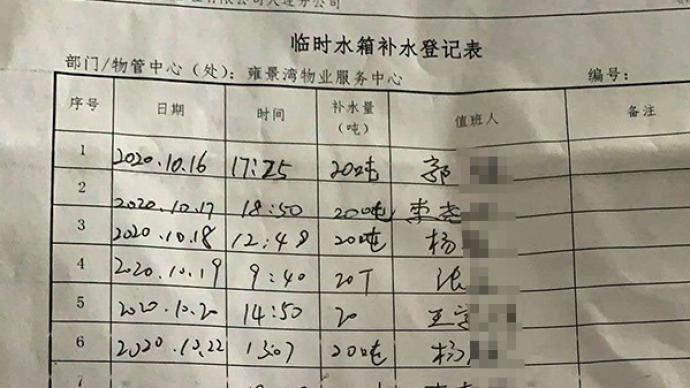 有限公司大连分公司
临时水箱补水登记表
部门/物管中心（处）：雍景湾物业服务中心 编号：
序号 日期 时间 补水量（吨） 值班人 备注
1 2020.10.16 17:25 200吨 郭
2 2020.10.17 18:50 200吨 李
3 2020.10.18 12:48 200吨 杨
4 2020.10.19 9:40 20T 张
5 2020.10.20 14:50 20 王
6 2020.10.22 13:07 200吨 杨
7